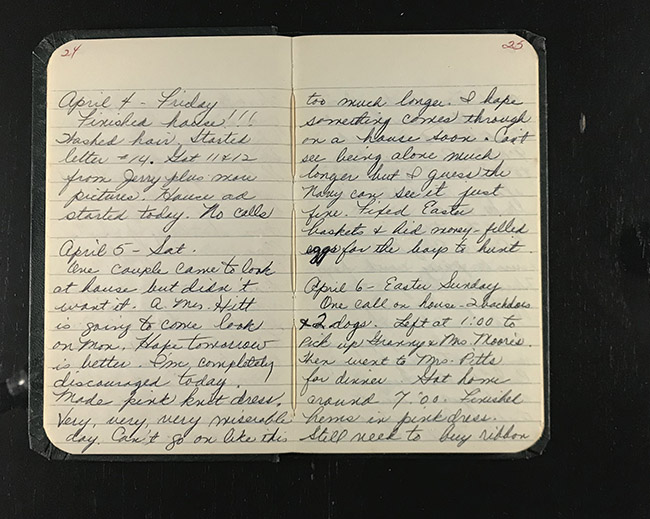 24
April 4 - Friday
Finished house!!!
Washed hair. Started
letter #14. Got 11 & 12
from Jerry plus more
pictures. House ad
started today. No calls
April 5 - Sat.
One couple came to look
at house but didn't
want it. A Mrs. Hitt
is going to come look
on Mon. Hope tomorrow
is better. I'm completely
discouraged today.
Made pink knit dress.
Very, very, very miserable
day. Can't go on like this
25
too much longer. I hope
something comes through
on a house soon. Can't
see being alone much
longer but I guess the
Navy can see it just
fine. Fixed Easter
baskets & hid money-filled
eggs for the boys to hunt.
April 6 - Easter Sunday
One call on house - 2 backdoors
& 2 dogs. Left at 1:00 to
pick up Granny & Mrs. Moore.
Then went to Mrs. Pitts
for dinner. Got home
around 7:00. Finished
hems in pink dress.
Still need to buy ribbon